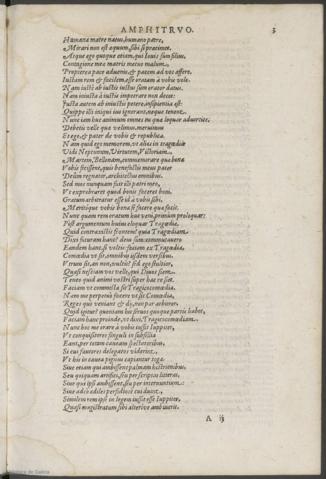 AMPHITRVO. 3
Humana matre natus, humano patre,
Mirari non est æquum, sibi si prætimet.
Atque ego quoque etiam, qui Iouis sum filius,
Contagione mei matris metuo malum.
Propterea pace aduenio, & pacem ad vos affero.
Iustam rem & facilem esse oratum à vobis volo.
Nam iustè ab iustis iustus sum orator datus.
Nam iniusta à iustis impetrare non decet:
Iusta autem ab iniustis petere, insipientia est:
Quippe illi iniqui ius ignorant, neque tenent.
Nunc iam huc animum omnes ea quæ loquar aduortite.
Debetis velle quæ velimus. meruimus
Et ego, & pater de vobis & republica.
Nam quid ego memorem, vt alios in tragœdiis
Vidi Neptunum, Virtutem, Victoriam,
Martem, Bellonam, commemorare quæ bona
Vobis fecissent, quîs benefactis meus pater
Deûm regnator, architectus omnibus.
Sed mos nunquam fuit illi patri meo,
Vt exprobraret quod bonis faceret boni.
Gratum arbitratur esse id à vobis sibi,
Meritóque vobis bona se facere quæ facit.
Nunc quam rem oratum huc veni, primum proloquar:
Pòst argumentum huius eloquar Tragœdiæ.
Quid contraxistis frontem? quia Tragœdiam
Dixi futuram hanc? deus sum: commutauero
Eandem hanc, si voltis: faciam ex Tragœdia,
Comœdia vt sit, omnibus iisdem versibus.
Vtrum sit, an non, vultis? sed ego stultior,
Quasi nesciam vos velle, qui Diuus siem.
Teneo quid animi vostri super hac re siet.
Faciam vt commista sit Tragicocomœdia.
Nam me perpetuò facere vt sit Comœdia,
Reges quò veniant & dij, non par arbitror.
Quid igitur? quoniam hic seruos quoque partes habet,
Faciam hanc proinde, vt dixi, Tragicocomœdiam.
Nunc hoc me orare à vobis iussit Iuppiter,
Vt conquisitores singuli in subsellia
Eant, per totam caueam spectatoribus,
Si cui fautores delegatos viderint,
Vt his in cauea pignus capiantur togæ.
Siue etiam qui ambissent palmam histrionibus,
Seu quoiquam artifici, seu per scriptas litteras,
Siue qui ipsi ambissent, seu per internuntium:
Siue adeò ædiles perfidiosè cui duint,
Similem rem ipse in legem iussit esse Iuppiter,
Quasi magistratum sibi alterive ambiuerit.
A iij